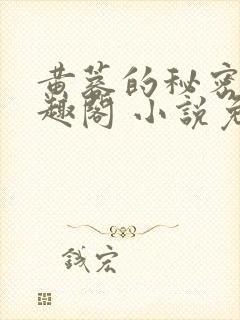 黄蓉的秘密
趣阁 小说免
钱宏